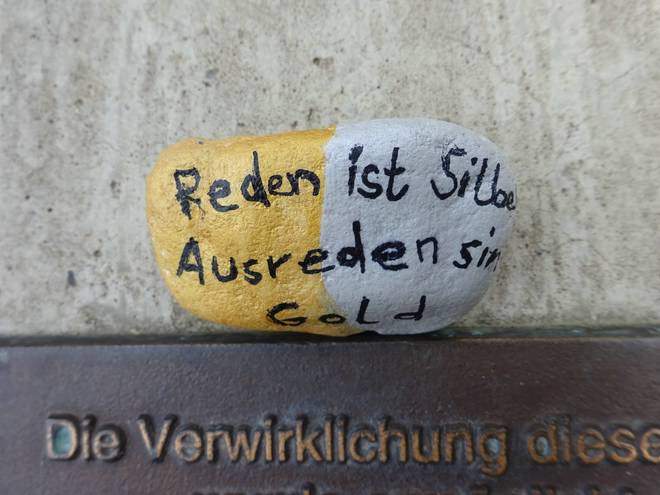 Reden ist Silbe
Ausreden sin
Gold
Die Verwirklichung diese